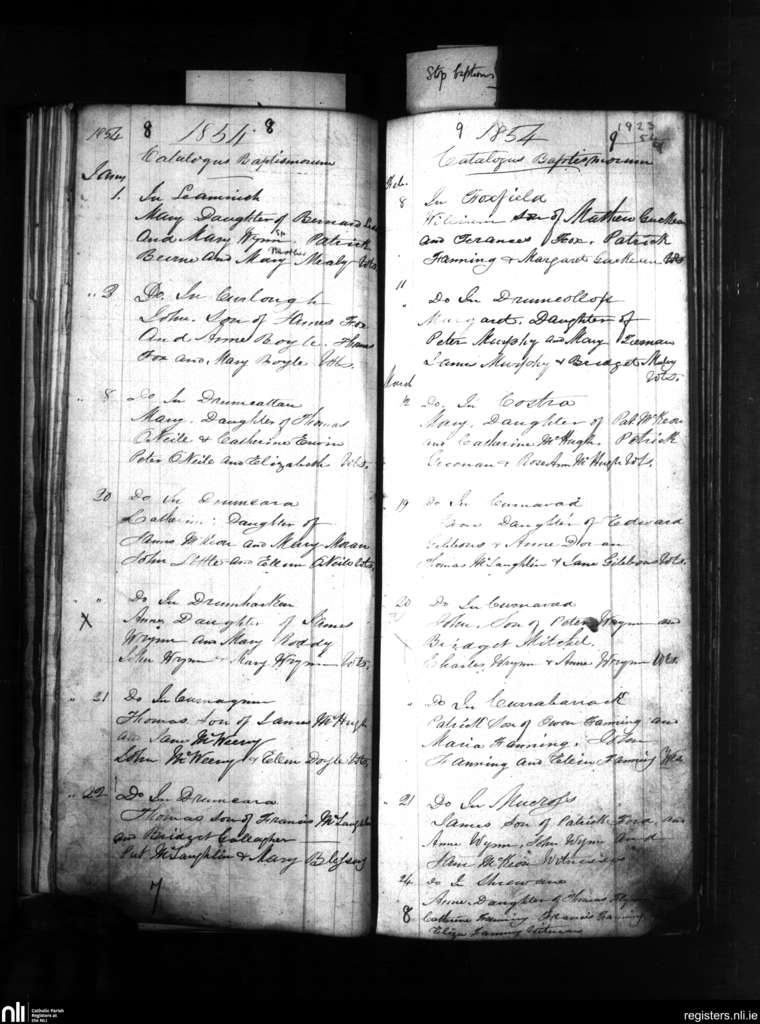 Stop Baptisms
1854 8 1854 8
Catalogus Baptismorum
Jany
1. In Leamnish
Mary Daughter of Bernard
And Mary Wynn. Patrick
Beirne and Mary Mealy Wts.
" 3 Do. In Curlough
John. Son of James Fox
And Anne Boyle. Thomas
Fox and Mary Boyle Wts.
" 8 Do In Drumcattan
Mary. Daughter of Thomas
O'Neile & Catherine
Peter O'Neile and Elizabeth Wts.
20 Do In Drumeara
Catherine Daughter of
James and Mary
John Little and Ellen O'Neile Wts
" Do In Drumharken
X Anne Daughter of James
Wrynn and Mary Roddy
John Wrynn & Mary Wrynn Wts.
" 21 Do In
Thomas Son of James McHugh
and Jane McWeeny
John McWeeny & Ellen Doyle Wts.
" 22 Do In Drumeara
Thomas Son of Francis McLaughlin
and Bridget Callagher
Pat McLaughlin & Mary Blessing
7
9 1854 9 1923
Catalogus Baptismorum
Feb.
8 In Foxfield
William Son of Mathew
and Frances Fox. Patrick
Fanning & Margaret Wts
11 Do In
Margaret. Daughter of
Peter Murphy and Mary
James Murphy & Bridget
Wts.
March
12 Do. In Costra
Mary. Daughter of Pat McKeon
and Catherine McHugh. Patrick
& Rose Ann McHugh Wts.
19 Do In Curnavad
Daughter of Edward
Gibbons & Anne Doran
Thomas McLaughlin & Jane Gibbons Wts.
20 Do In Curnavad
John. Son of Peter Wrynn and
Bridget Mitchel.
Charles Wrynn & Anne Wrynn Wts.
" Do In
Patrick Son of Owen Fanning and
Maria Fanning. John
Fanning and Ellen Fanning Wts
" 21 Do In Mucross
James Son of Patrick Ford and
Anne Wynn. John Wynn and
Jane McKeon Witnesses
24 Do In
Anne. Daughter of Thomas
8 Catherine Fanning Francis Fanning
Eliza Fanning Witnesses
nli Catholic Parish
Registers at
the NLI
registers.nli.ie